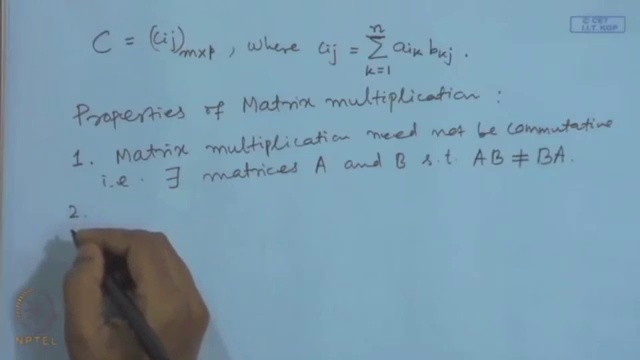 © CET
I.I.T. KGP
C = (cij)mxp, where cij = n∑k=1 aik bkj.
Properties of Matrix multiplication :
1. Matrix multiplication need not be commutative
i.e. ∃ matrices A and B s.t. AB ≠ BA.
2.
NPTEL